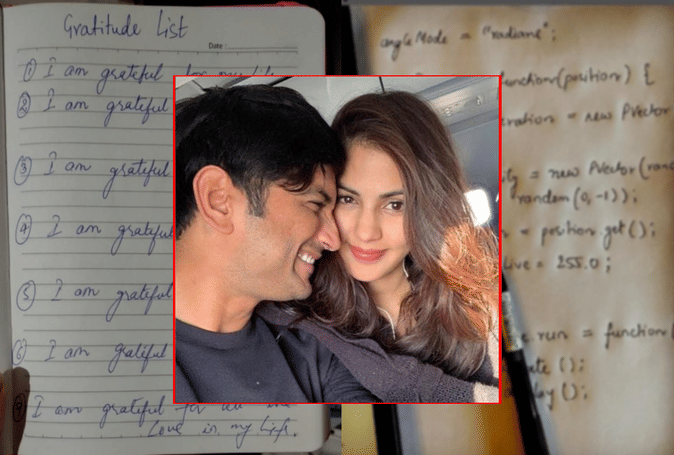 Gratitude List
Date :
① I am grateful for my life
② I am grateful
③ I am grateful
④ I am grateful
⑤ I am grateful
⑥ I am grateful
I am grateful for all the
Love in my Life.
angleMode = "radians";
function(position) {
= new PVector
= new PVector(
random(0, -1));
= position.get();
= 255.0;
run = function(
();
();